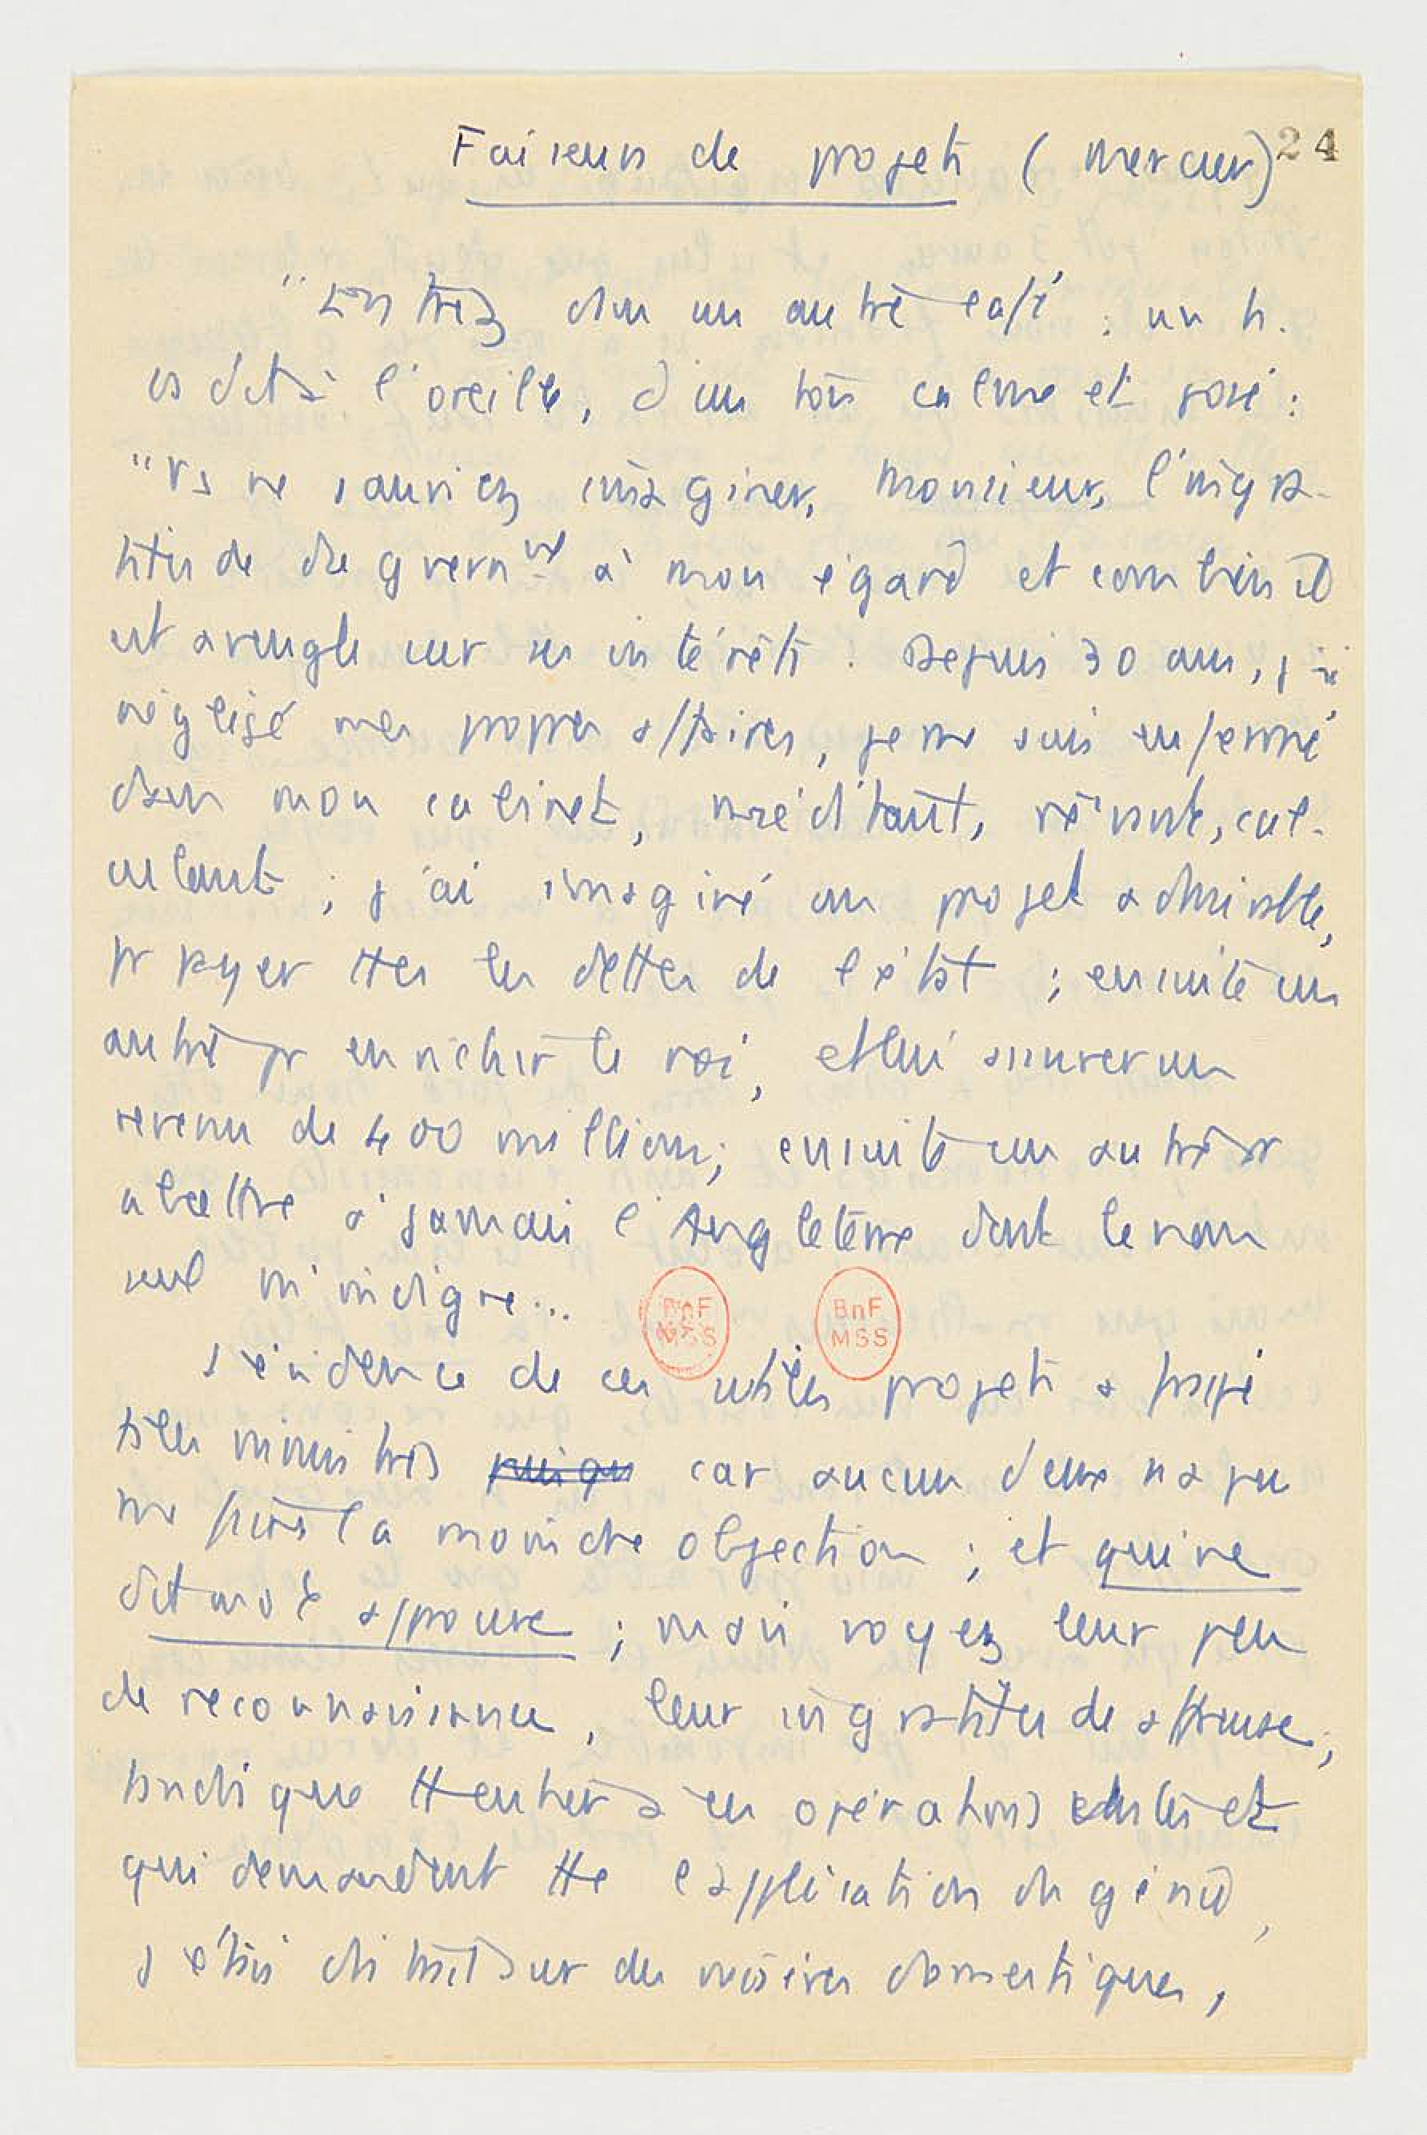 Faiseurs de projets (Mercier) 24
"Entrez dans un autre café : un h.
vs dit à l'oreille, d'un ton calme et posé :
"Vs ne sauriez imaginer, Monsieur, l'ingra-
titude du gvernnt à mon égard et combien il
est aveugle sur ses intérêts. Depuis 30 ans, j'ai
négligé mes propres affaires, je me suis enfermé
dans mon cabinet, méditant, rêvant, cal-
culant ; j'ai imaginé un projet admirable,
pr payer ttes les dettes de l'état ; ensuite un
autre pr enrichir le roi, et lui assurer un
revenu de 400 millions; ensuite un autre pr
abattre à jamais l'Angleterre dont le nom
seul m'indigne...
BnF MSS BnF MSS
L'évidence de ces utiles projets a frappé
ts les ministres puisqu car aucun d'eux n'a pu
me faire la moindre objection ; et qui ne
dit mot approuve ; mais voyez leur peu
de reconnaissance, leur ingratitude affreuse,
tandis que tt entier à ces opérations vastes et
qui demandent tte l'application du génie,
j'étais distrait sur des misères domestiques,